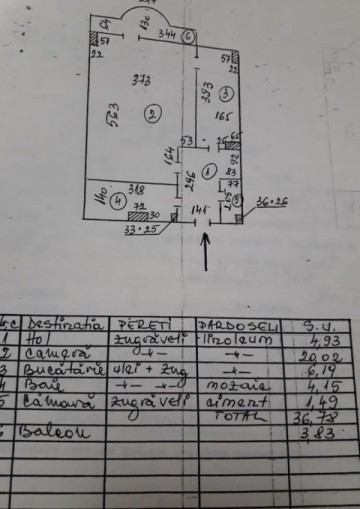 130
344 6
57
57
22
22
373
393
3
563
2
165
53
25 65
164
92
1
296
83
318
77
140
4
72
205
141
30
36×26
33×25
Destinatia PERETI PARDOSELI S.U.
1 Hol zugrăveli linoleum 4,93
2 Cameră -"- -"- 20,02
3 Bucătărie ulei + zug -"- 6,19
4 Baie -"- -"- mozaic 4,15
5 Cămară zugrăveli ciment 1,49
TOTAL 36,78
Balcon 3,83